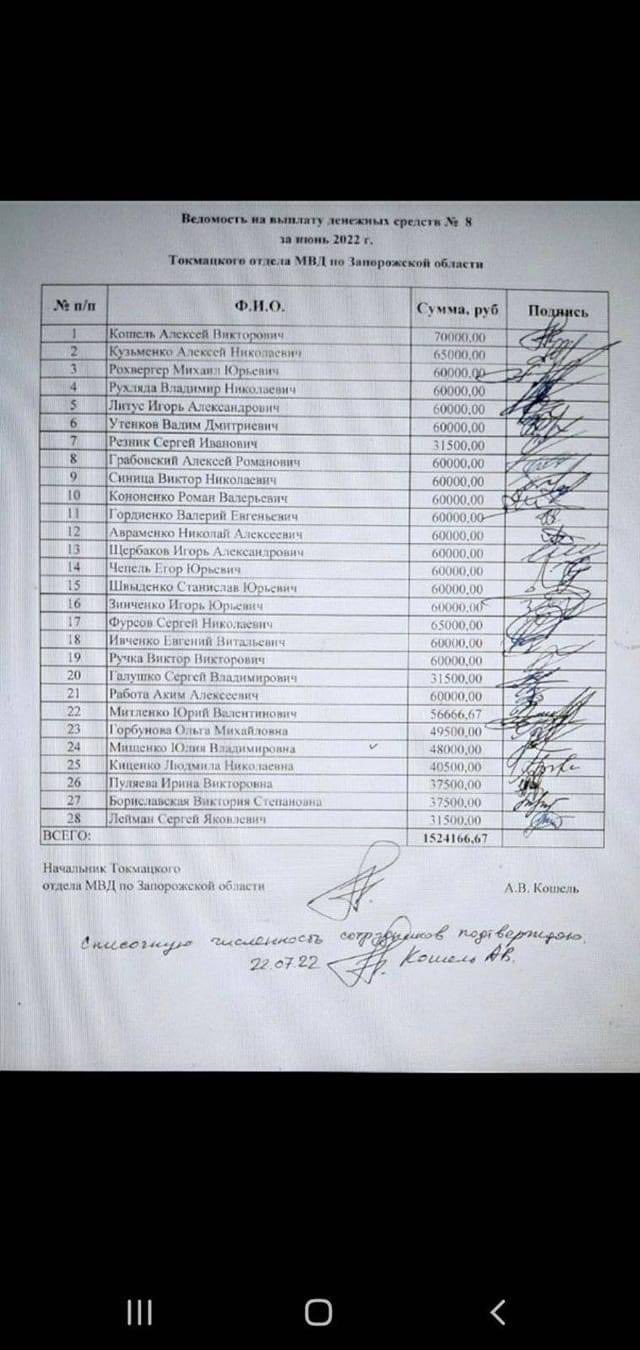 Ведомость на выплату денежных средств № 8
за июнь 2022 г.
Токмацкого отдела МВД по Запорожской области
№ п/п Ф.И.О. Сумма, руб Подпись
1 Кошель Алексей Викторович 70000,00
2 Кузьменко Алексей Николаевич 65000,00
3 Рохвергер Михаил Юрьевич 60000,00
4 Рухляда Владимир Николаевич 60000,00
5 Литус Игорь Александрович 60000,00
6 Утенков Вадим Дмитриевич 60000,00
7 Резник Сергей Иванович 31500,00
8 Грабовский Алексей Романович 60000,00
9 Синица Виктор Николаевич 60000,00
10 Кононенко Роман Валерьевич 60000,00
11 Гордиенко Валерий Евгеньевич 60000,00
12 Авраменко Николай Алексеевич 60000,00
13 Щербаков Игорь Александрович 60000,00
14 Чепель Егор Юрьевич 60000,00
15 Швыденко Станислав Юрьевич 60000,00
16 Зинченко Игорь Юрьевич 60000,00
17 Фурсов Сергей Николаевич 65000,00
18 Ивченко Евгений Витальевич 60000,00
19 Ручка Виктор Викторович 60000,00
20 Галушко Сергей Владимирович 31500,00
21 Работа Аким Алексеевич 60000,00
22 Митленко Юрий Валентинович 56666,67
23 Горбунова Ольга Михайловна 49500,00
24 Мищенко Юлия Владимировна 48000,00
25 Киценко Людмила Николаевна 40500,00
26 Пуляева Ирина Викторовна 37500,00
27 Бориславская Виктория Степановна 37500,00
28 Лейман Сергей Яковлевич 31500,00
ВСЕГО: 1524166,67
Начальник Токмацкого
отдела МВД по Запорожской области А.В. Кошель
Списочную численность сотрудников подтверждаю.
22.07.22 Кошель АВ.